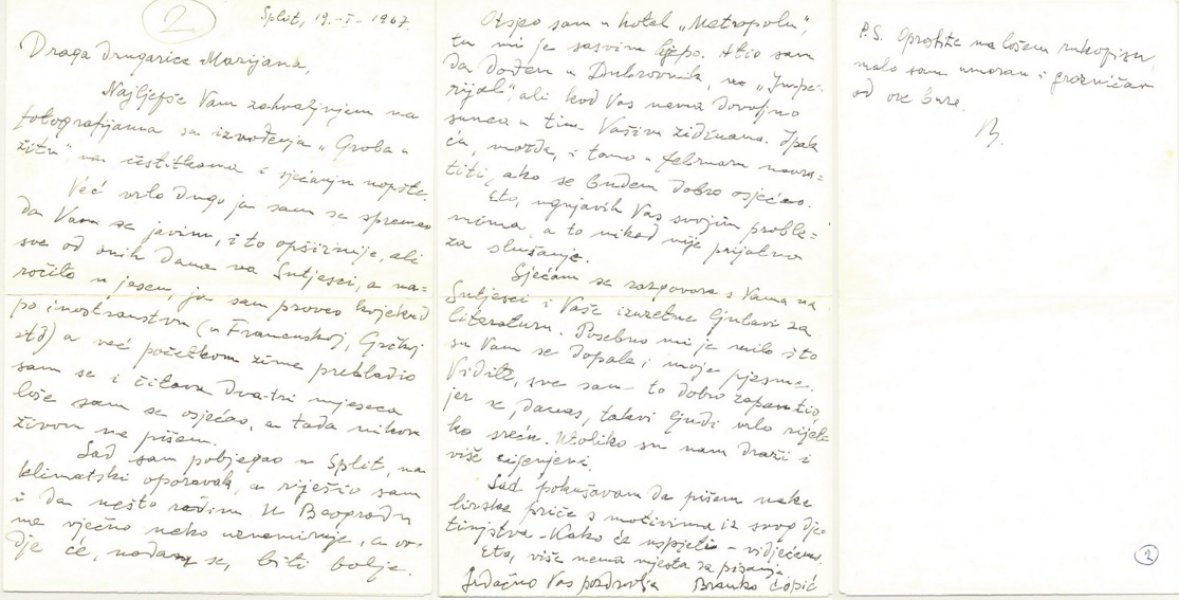 2
Split, 19.-I-1967.
Draga drugarice Marijana,
Najljepše Vam zahvaljujem na
fotografijama sa izvođenja „Groba u
žitu", na čestitkama i sjećanju uopšte.
Već vrlo dugo ja sam se spremao
da Vam se javim, i to opširnije, ali
sve od onih dana na Sutjesci, a na=
ročito u jesen, ja sam proveo kojekud
po inostranstvu (u Francuskoj, Grčkoj
itd) a već početkom zime prehladio
sam se i čitava dva-tri mjeseca
loše sam se osjećao, a tada nikom
živom ne pišem.
Sad sam pobjegao u Split, na
klimatski oporavak, a riješio sam
i da nešto radim. U Beogradu
me vječno neko uznemiruje, a ov-
dje će, nadam se, biti bolje.
Otsjeo sam u hotel „Metropolu",
tu mi je sasvim lijepo. Htio sam
da dođem u Dubrovnik, na „Impe-
rijal", ali kod Vas nema dovoljno
sunca u tim Vašim zidinama. Ipak
ću, možda, i tamo u februaru navra=
titi, ako se budem dobro osjećao.
Eto, ugnjavih Vas svojim proble=
mima, a to nikad nije prijatno
za slušanje.
Sjećam se razgovora s Vama na
Sutjesci i Vaše izuzetne ljubavi za
literaturu. Posebno mi je milo što
su Vam se dopale i moje pjesme.
Vidite, sve sam to dobro zapamtio,
jer se, danas, takvi ljudi vrlo rijet-
ko sreću. Utoliko su nam draži i
više cijenjeni.
Sad pokušavam da pišem neke
lirske priče s motivima iz svog dje-
tinjstva. Kako će uspjeti - vidjećemo.
Eto, više nema mjesta za pisanje.
Srdačno Vas pozdravlja Branko Ćopić
P.S. Oprostite na lošem rukopisu,
malo sam umoran i grozničav
od ove bure.
B.
2